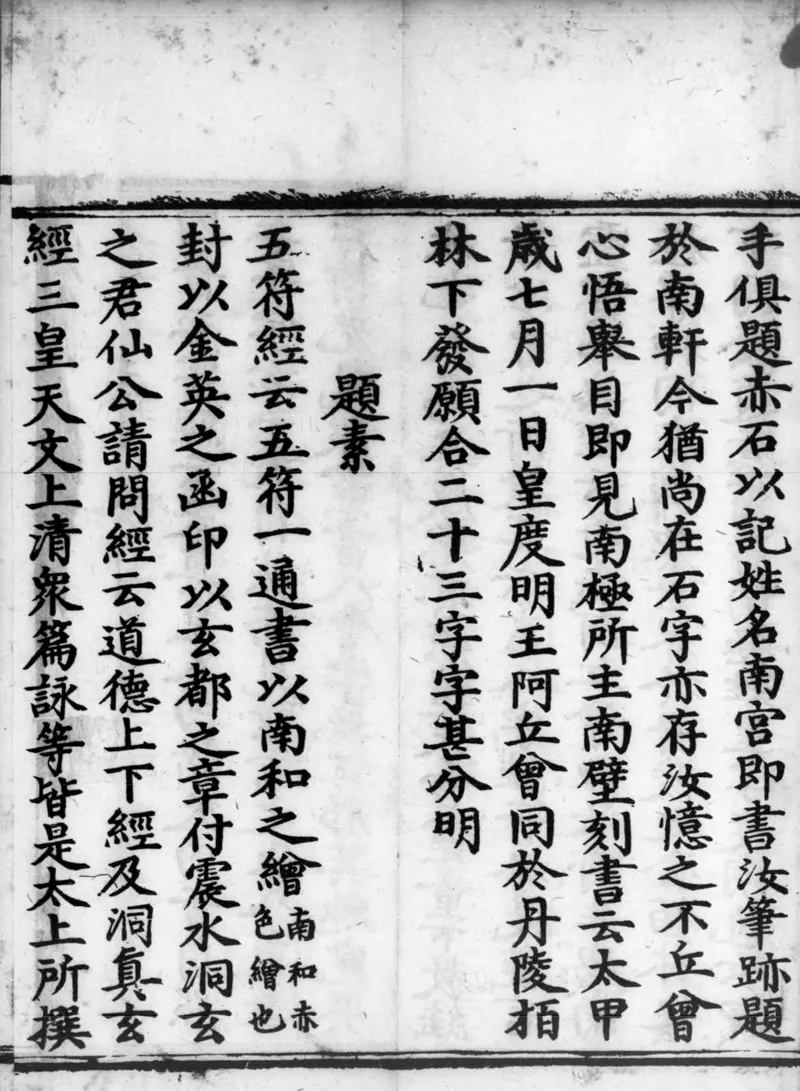 手俱題赤石以記姓名南宮即書汝筆跡題
於南軒今猶尚在石字亦存汝憶之不丘曾
心悟舉目即見南極所主南壁刻書云太甲
歲七月一日皇度明王阿丘曾同於丹陵栢
林下發願合二十三字字甚分明
題素
五符經云五符一通書以南和之繒南和赤色繒也
封以金英之函印以玄都之章付震水洞玄
之君仙公請問經云道德上下經及洞真玄
經三皇天文上清衆篇詠等皆是太上所撰